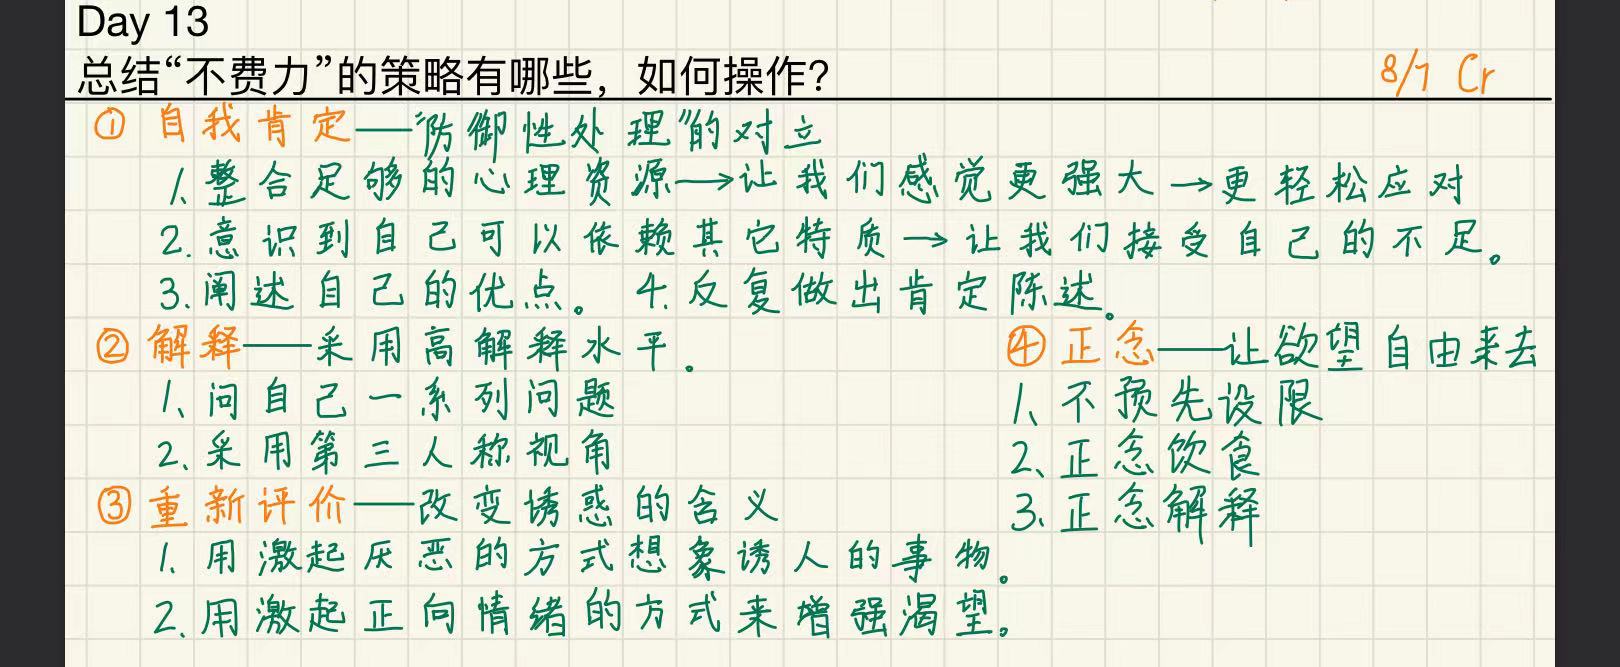 Day 13
总结“不费力”的策略有哪些，如何操作？
8/7 Cr
① 自我肯定——“防御性处理”的对立
1、整合足够的心理资源→让我们感觉更强大→更轻松应对
2. 意识到自己可以依赖其它特质→让我们接受自己的不足。
3. 阐述自己的优点。 4. 反复做出肯定陈述。
② 解释——采用高解释水平。
1、问自己一系列问题
2、采用第三人称视角
③ 重新评价——改变诱惑的含义
1、用激起厌恶的方式想象诱人的事物。
2、用激起正向情绪的方式来增强渴望。
④ 正念——让欲望自由来去
1、不预先设限
2、正念饮食
3、正念解释